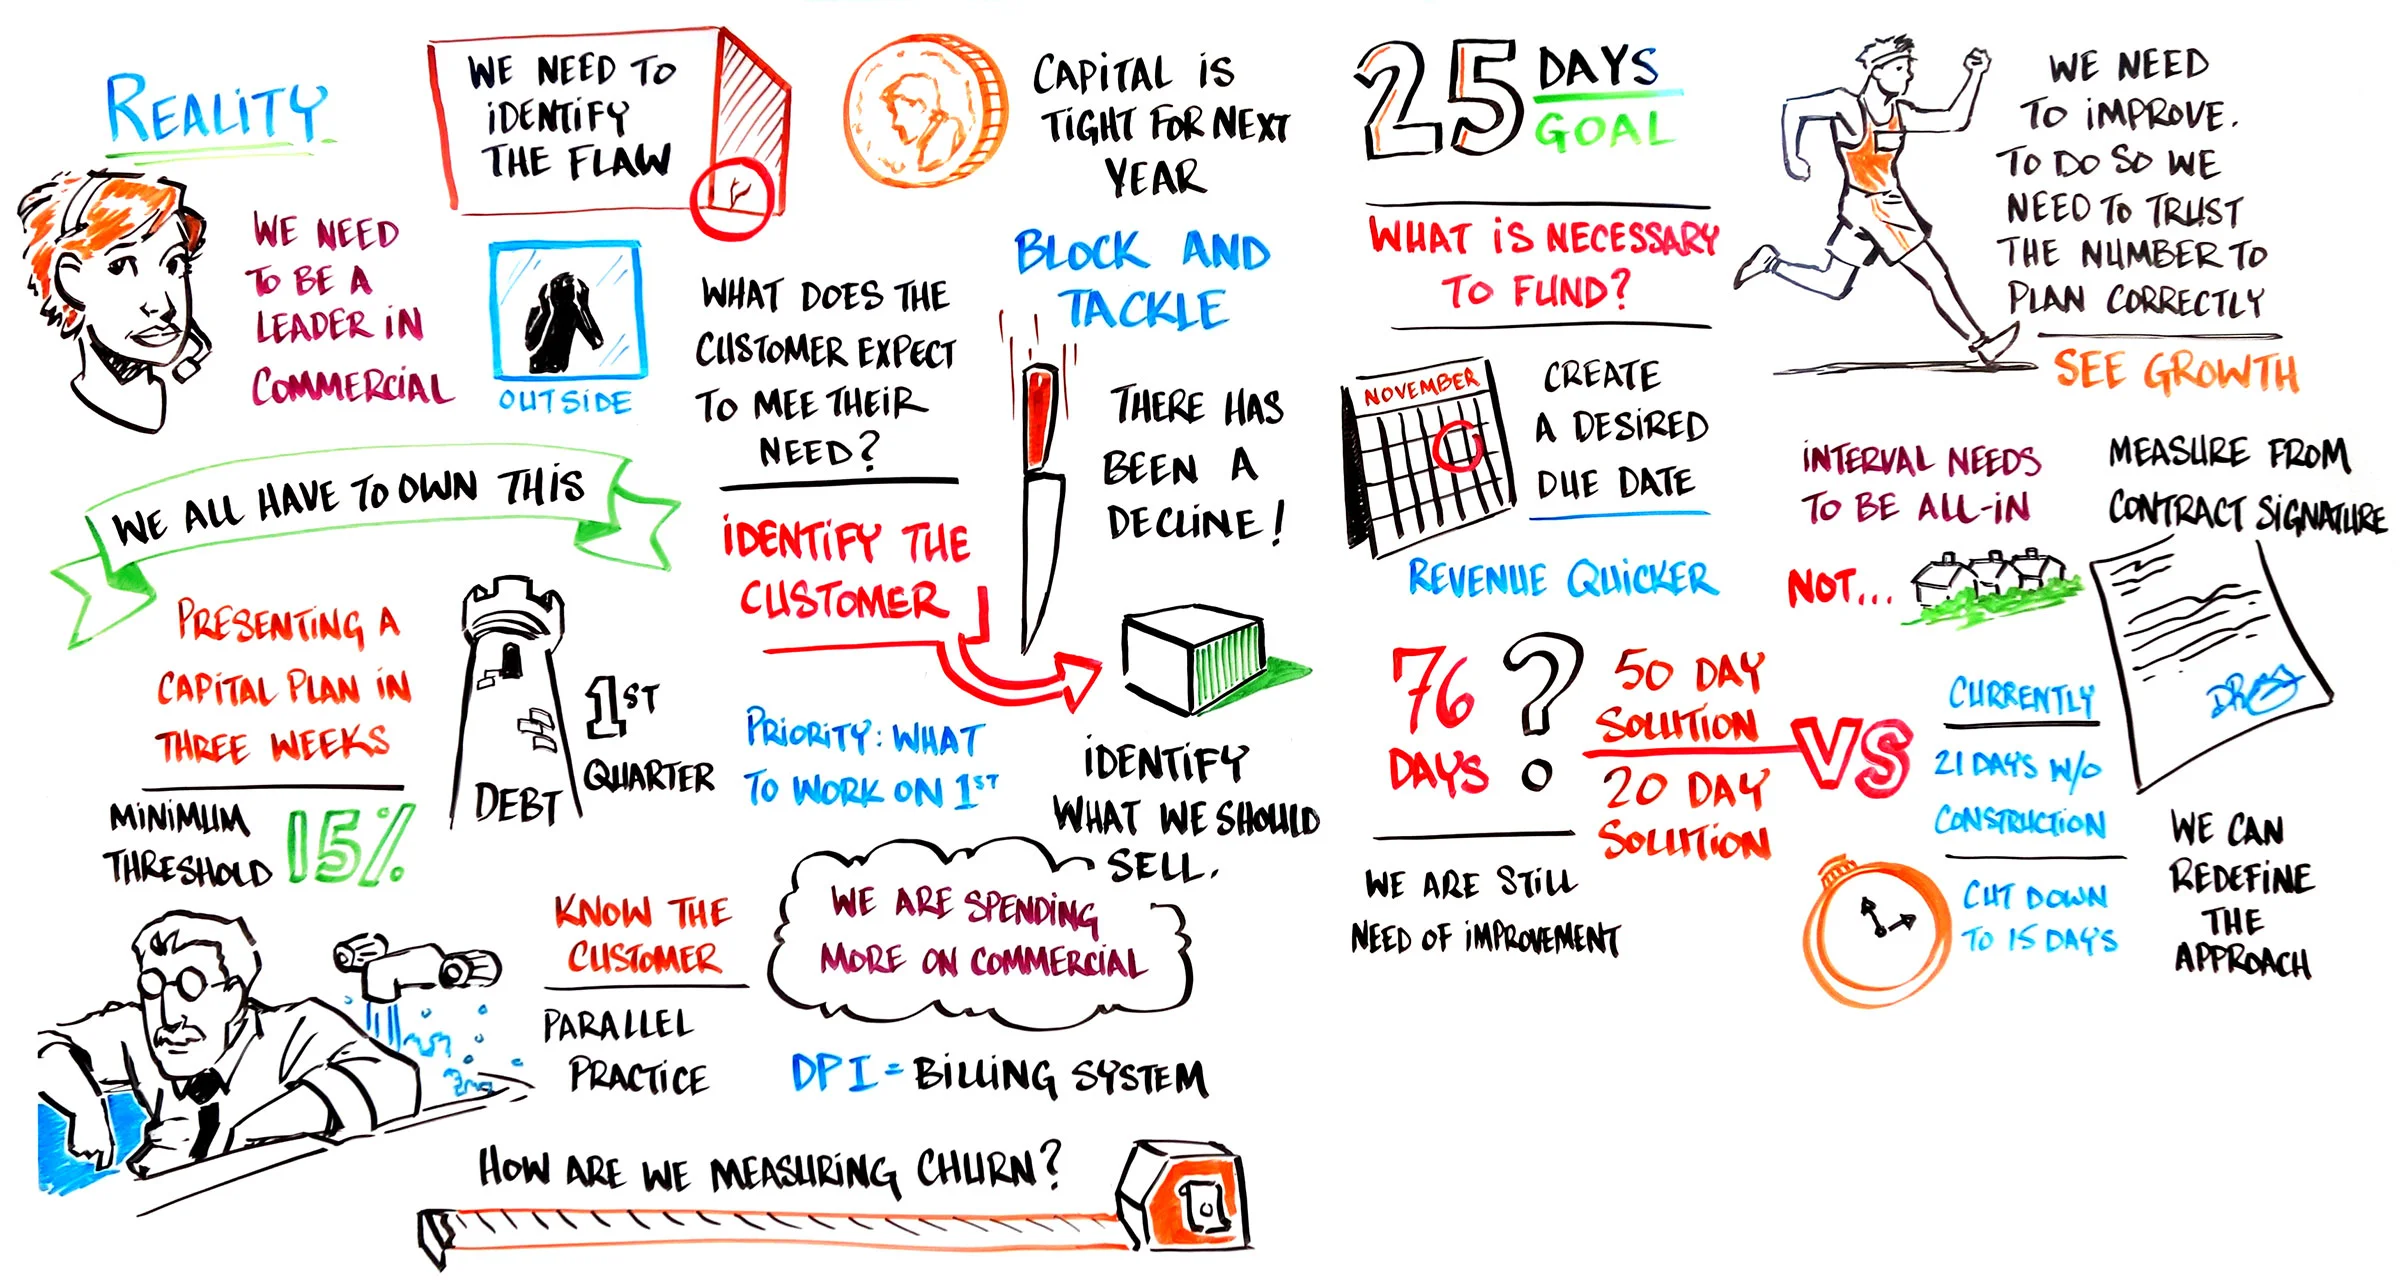 REALITY
WE NEED
TO BE A
LEADER IN
COMMERCIAL
WE NEED TO
IDENTIFY
THE FLAW
OUTSIDE
WE ALL HAVE TO OWN THIS
PRESENTING A
CAPITAL PLAN IN
THREE WEEKS
MINIMUM
THRESHOLD
15%
DEBT
1ST
QUARTER
CAPITAL IS
TIGHT FOR NEXT
YEAR
WHAT DOES THE
CUSTOMER EXPECT
TO MEE THEIR
NEED?
IDENTIFY THE
CUSTOMER
BLOCK AND
TACKLE
THERE HAS
BEEN A
DECLINE!
PRIORITY: WHAT
TO WORK ON 1ST
IDENTIFY
WHAT WE SHOULD
SELL.
KNOW THE
CUSTOMER
PARALLEL
PRACTICE
WE ARE SPENDING
MORE ON COMMERCIAL
DPI = BILLING SYSTEM
HOW ARE WE MEASURING CHURN?
25
DAYS
GOAL
WHAT IS NECESSARY
TO FUND?
NOVEMBER
CREATE
A DESIRED
DUE DATE
REVENUE QUICKER
76
DAYS
?
50 DAY
SOLUTION
20 DAY
SOLUTION
VS
WE ARE STILL
NEED OF IMPROVEMENT
WE NEED
TO IMPROVE.
TO DO SO WE
NEED TO TRUST
THE NUMBER TO
PLAN CORRECTLY
SEE GROWTH
INTERVAL NEEDS
TO BE ALL-IN
NOT...
MEASURE FROM
CONTRACT SIGNATURE
CURRENTLY
21 DAYS W/O
CONSTRUCTION
CUT DOWN
TO 15 DAYS
WE CAN
REDEFINE
THE
APPROACH